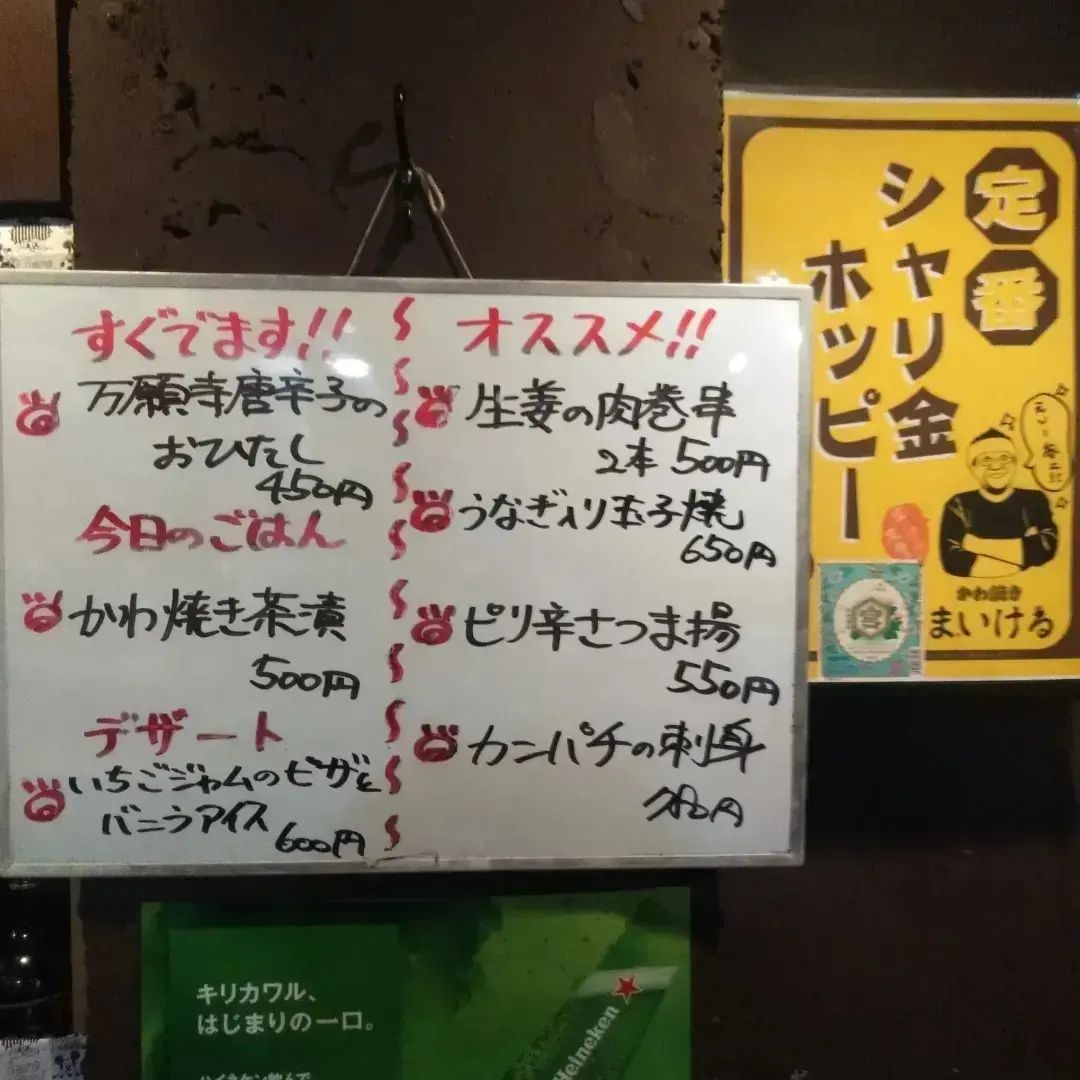 すぐでます!!
万願寺唐辛子の
おひたし
450円
今日のごはん
かわ焼き茶漬
500円
デザート
いちごジャムのピザと
バニラアイス
600円
オススメ!!
生姜の肉巻串
2本 500円
うなぎ入り玉子焼
650円
ピリ辛さつま揚
550円
カンパチの刺身
円
定番
シャリ金
ホッピー
かわ焼き
まいける
キリカワル、
はじまりの一口。
ハイネケン飲んで
Heineken